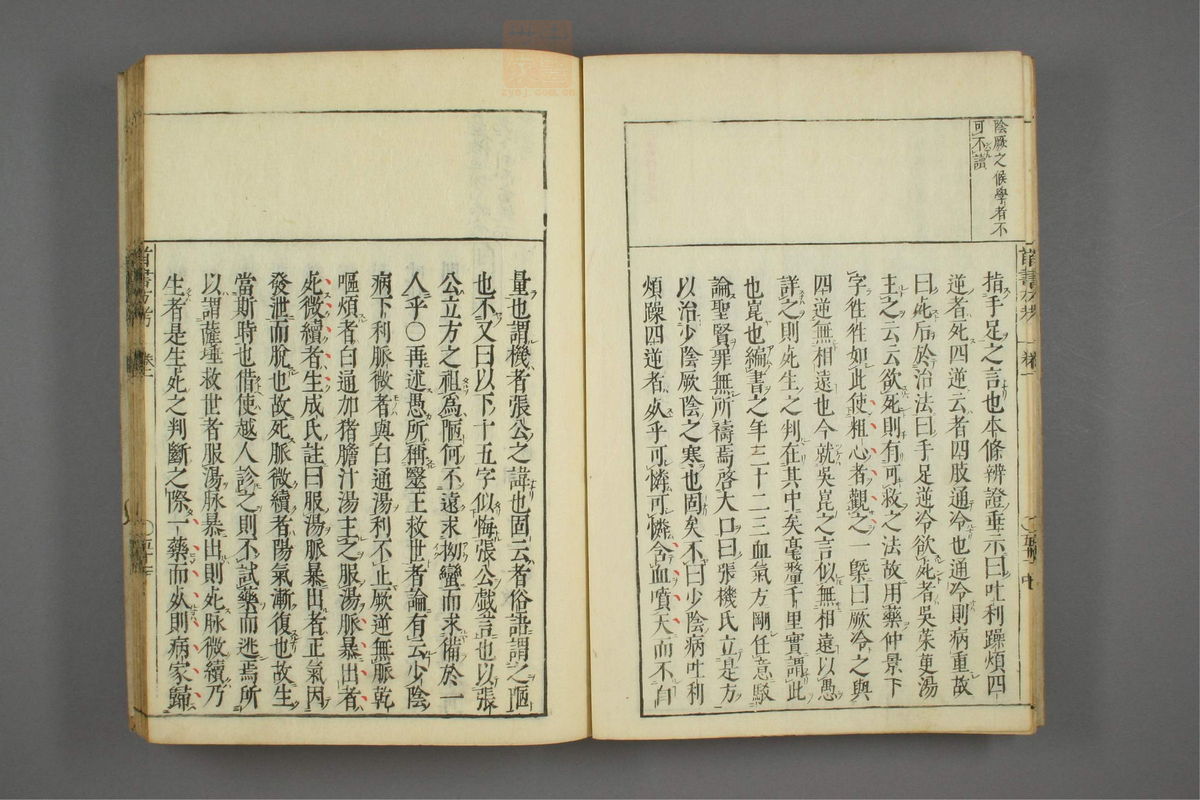 陰厥之候學者不
可不讀
指手足之言也本條辨證垂示曰吐利躁煩四
逆者死四逆云者四肢通冷也通冷則病重故
曰死后於治法曰手足逆冷欲死者吳茱萸湯
主之云云欲死則有可救之法故用藥仲景下
字徃徃如此使粗心者觀之一槩曰厥冷之與
四逆無相遠也今就吳崑之言似無相遠以愚
詳之則死生之判在其中矣毫釐千里實謂此
也崑也編書之年三十二三血氣方剛任意駁
論聖賢罪無所禱焉啓大口曰張機氏立是方
以治少陰厥陰之寒也固矣不曰少陰病吐利
煩躁四逆者死乎可憐可憐含血噴天而不自
量也謂機者張公之諱也固云者俗語謂之陋
也不又曰以下十五字似悔張公戲言也以張
公立方之祖為陋何不遠求拗蠻而求備於一
人乎〇再述愚所稱毉王救世者論有云少陰
病下利脈微者與白通湯利不止厥逆無脈乾
嘔煩者白通加猪膽汁湯主之服湯脈暴出者
死微續者生成氏註曰服湯脈暴出者正氣因
發泄而脫也故死脈微續者陽氣漸復也故生
當斯時也借使越人診之則不試藥而逃焉所
以謂薩埵救世者服湯脉暴出則死脉微續乃
生者是生死之判斷之際一藥而死則病家歸